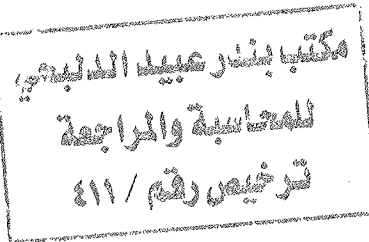 مكتب بندر عبيد الدلبحي
للمحاسبة والمراجعة
ترخيص رقم / ٤١١